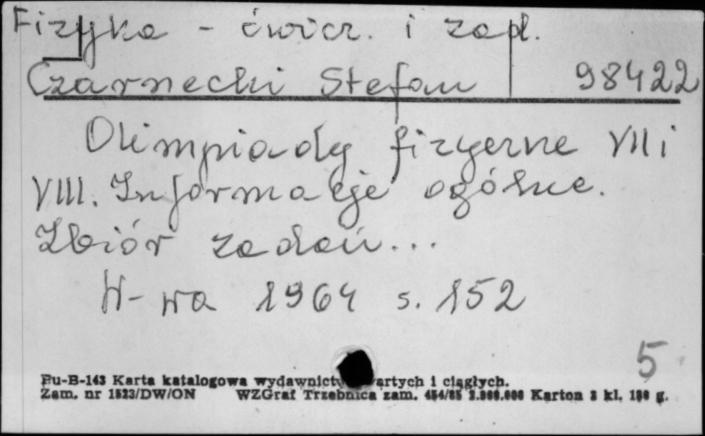 Fizyka - ćwicz. i zad.
Czarnecki Stefan 98422
Olimpiady fizyczne VII i
VIII. Informacje ogólne.
Zbiór zadań...
W-wa 1964 s. 152
5
Pu-B-143 Karta katalogowa wydawnictw zwartych i ciągłych.
Zam. nr 1523/DW/ON WZGraf Trzebnica zam. Karton 3 kl. g.